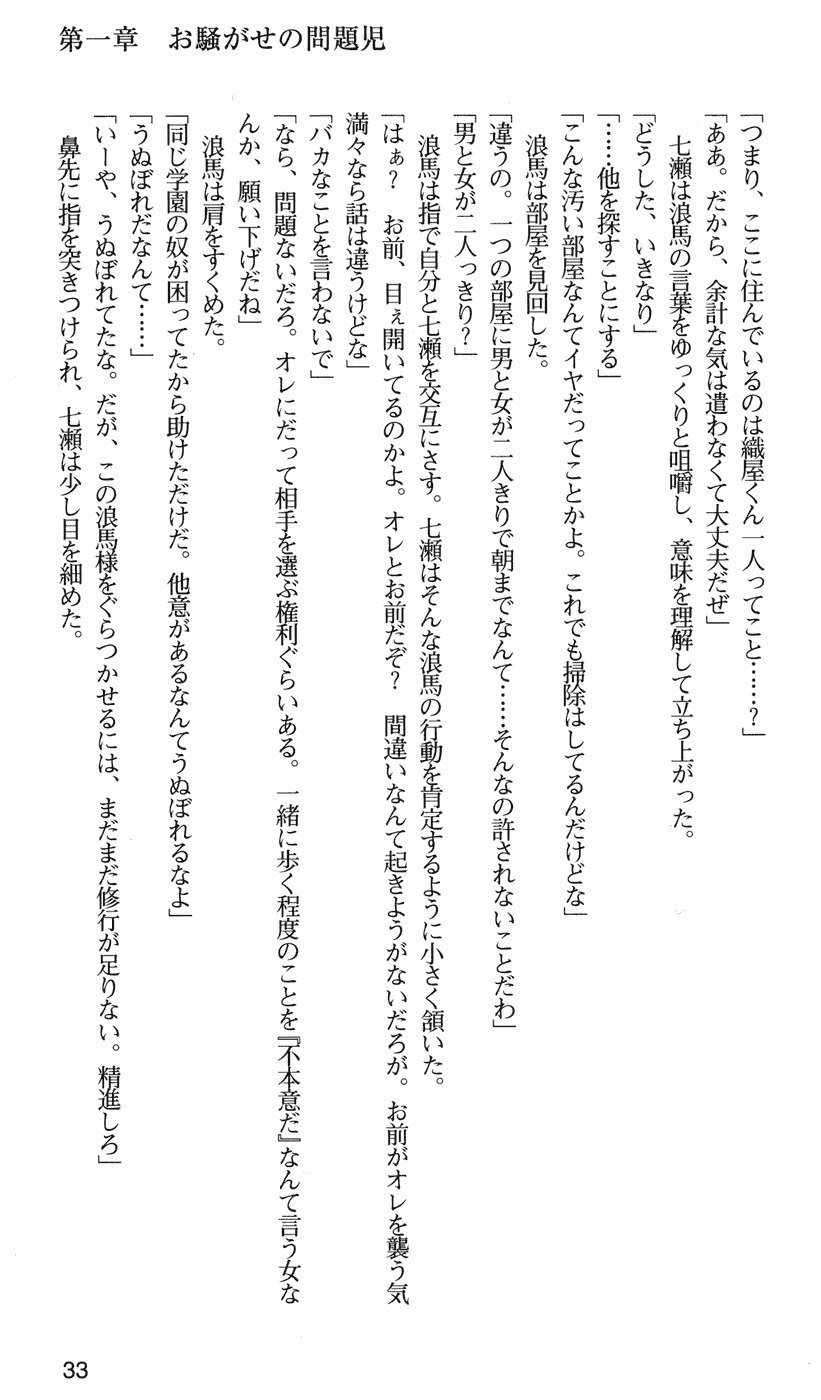 第一章　お騒がせの問題児
「つまり、ここに住んでいるのは織屋くん一人ってこと……？」
「ああ。だから、余計な気は遣わなくて大丈夫だぜ」
　七瀬は浪馬の言葉をゆっくりと咀嚼し、意味を理解して立ち上がった。
「どうした、いきなり」
「……他を探すことにする」
「こんな汚い部屋なんてイヤだってことかよ。これでも掃除はしてるんだけどな」
　浪馬は部屋を見回した。
「違うの。一つの部屋に男と女が二人きりで朝までなんて……そんなの許されないことだわ」
「男と女が二人っきり？」
　浪馬は指で自分と七瀬を交互にさす。七瀬はそんな浪馬の行動を肯定するように小さく頷いた。
「はぁ？　お前、目ぇ開いてるのかよ。オレとお前だぞ？　間違いなんて起きようがないだろが。お前がオレを襲う気
満々なら話は違うけどな」
「バカなことを言わないで」
「なら、問題ないだろ。オレにだって相手を選ぶ権利ぐらいある。一緒に歩く程度のことを『不本意だ』なんて言う女な
んか、願い下げだね」
　浪馬は肩をすくめた。
「同じ学園の奴が困ってたから助けただけだ。他意があるなんてうぬぼれるなよ」
「うぬぼれだなんて……」
「いーや、うぬぼれてたな。だが、この浪馬様をぐらつかせるには、まだまだ修行が足りない。精進しろ」
　鼻先に指を突きつけられ、七瀬は少し目を細めた。
33